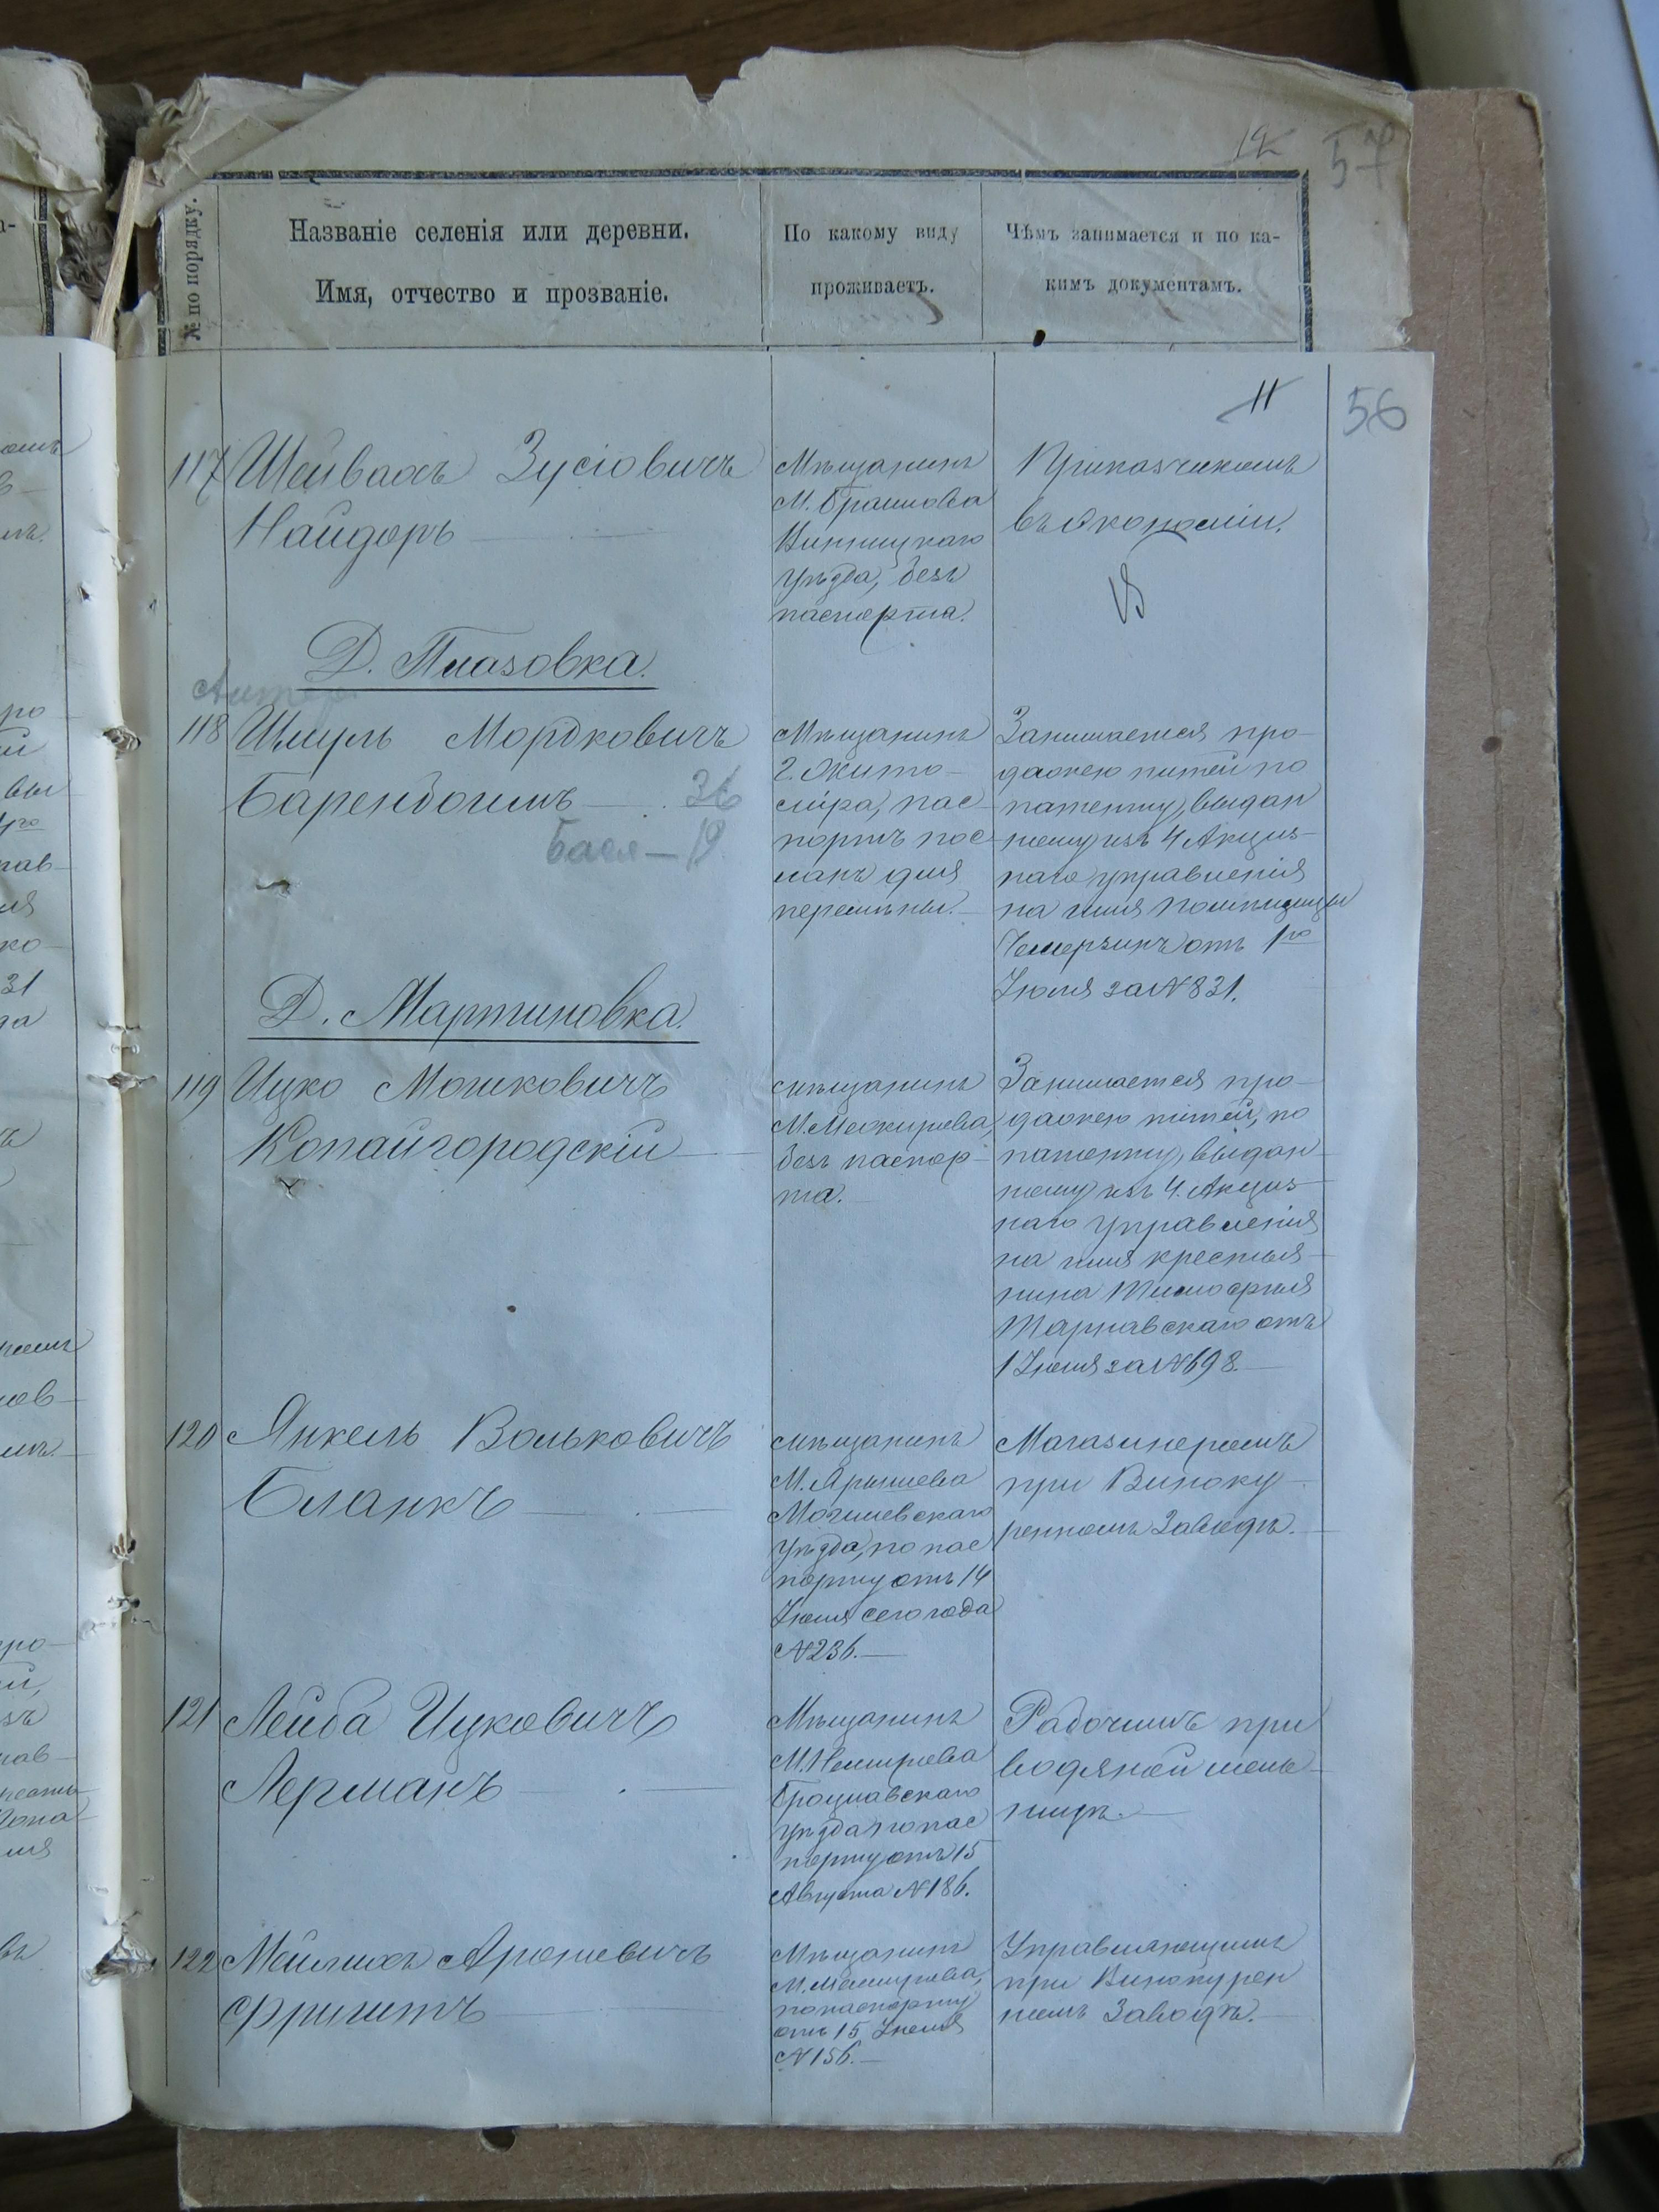 12
57
№ по порядку.
Названіе селенія или деревни.
Имя, отчество и прозваніе.
По какому виду
проживаетъ.
Чѣмъ занимается и по ка-
кимъ документамъ.
11
56
117 Шейвахъ Зусіовичъ
Найдоръ
Мѣщанинъ
М. Браилова
Винницкаго
уѣзда, безъ
паспорта.
Приказчикомъ
въ Экономіи.
Д. Плазовка.
118 Шмуль Мордковичъ
Барендбоимъ 36
Бася — 19
Мѣщанинъ
г. Жито-
мира, пас-
портъ пос-
ланъ для
перемѣны.
Занимается про-
дажею питей по
патенту, выдан
ному изъ 4 Акциз-
наго управленія
на имя помѣщицы
Чемерзинъ отъ 1го
Іюля за № 831.
Д. Мартиновка.
119 Ицко Мошковичъ
Копайгородскій
мѣщанинъ
М. Межирова,
безъ паспор-
та.
Занимается про-
дажею питей, по
патенту, выдан-
ному изъ 4. Акциз-
наго Управленія
на имя крестья-
нина Тимофтія
Тарнавскаго отъ
1 Іюля за № 698.
120 Янкель Вольковичъ
Бланкъ
мѣщанинъ
М. Ярышева
Могилевскаго
уѣзда, по пас
порту отъ 14
Іюля сего года
№ 236.
Магазинеромъ
при Виноку-
ренномъ Заводѣ.
121 Лейба Ицковичъ
Лерманъ
Мѣщанинъ
М. Немирова
Брацлавскаго
уѣзда по пас
порту отъ 15
Августа № 186.
Рабочимъ при
водяной мель-
ницѣ.
122 Мейлихъ Ароневичъ
Фриштъ
Мѣщанинъ
по паспорту
отъ 15 Іюля
№ 156.
Управляющимъ
при Винокурен
номъ Заводѣ.